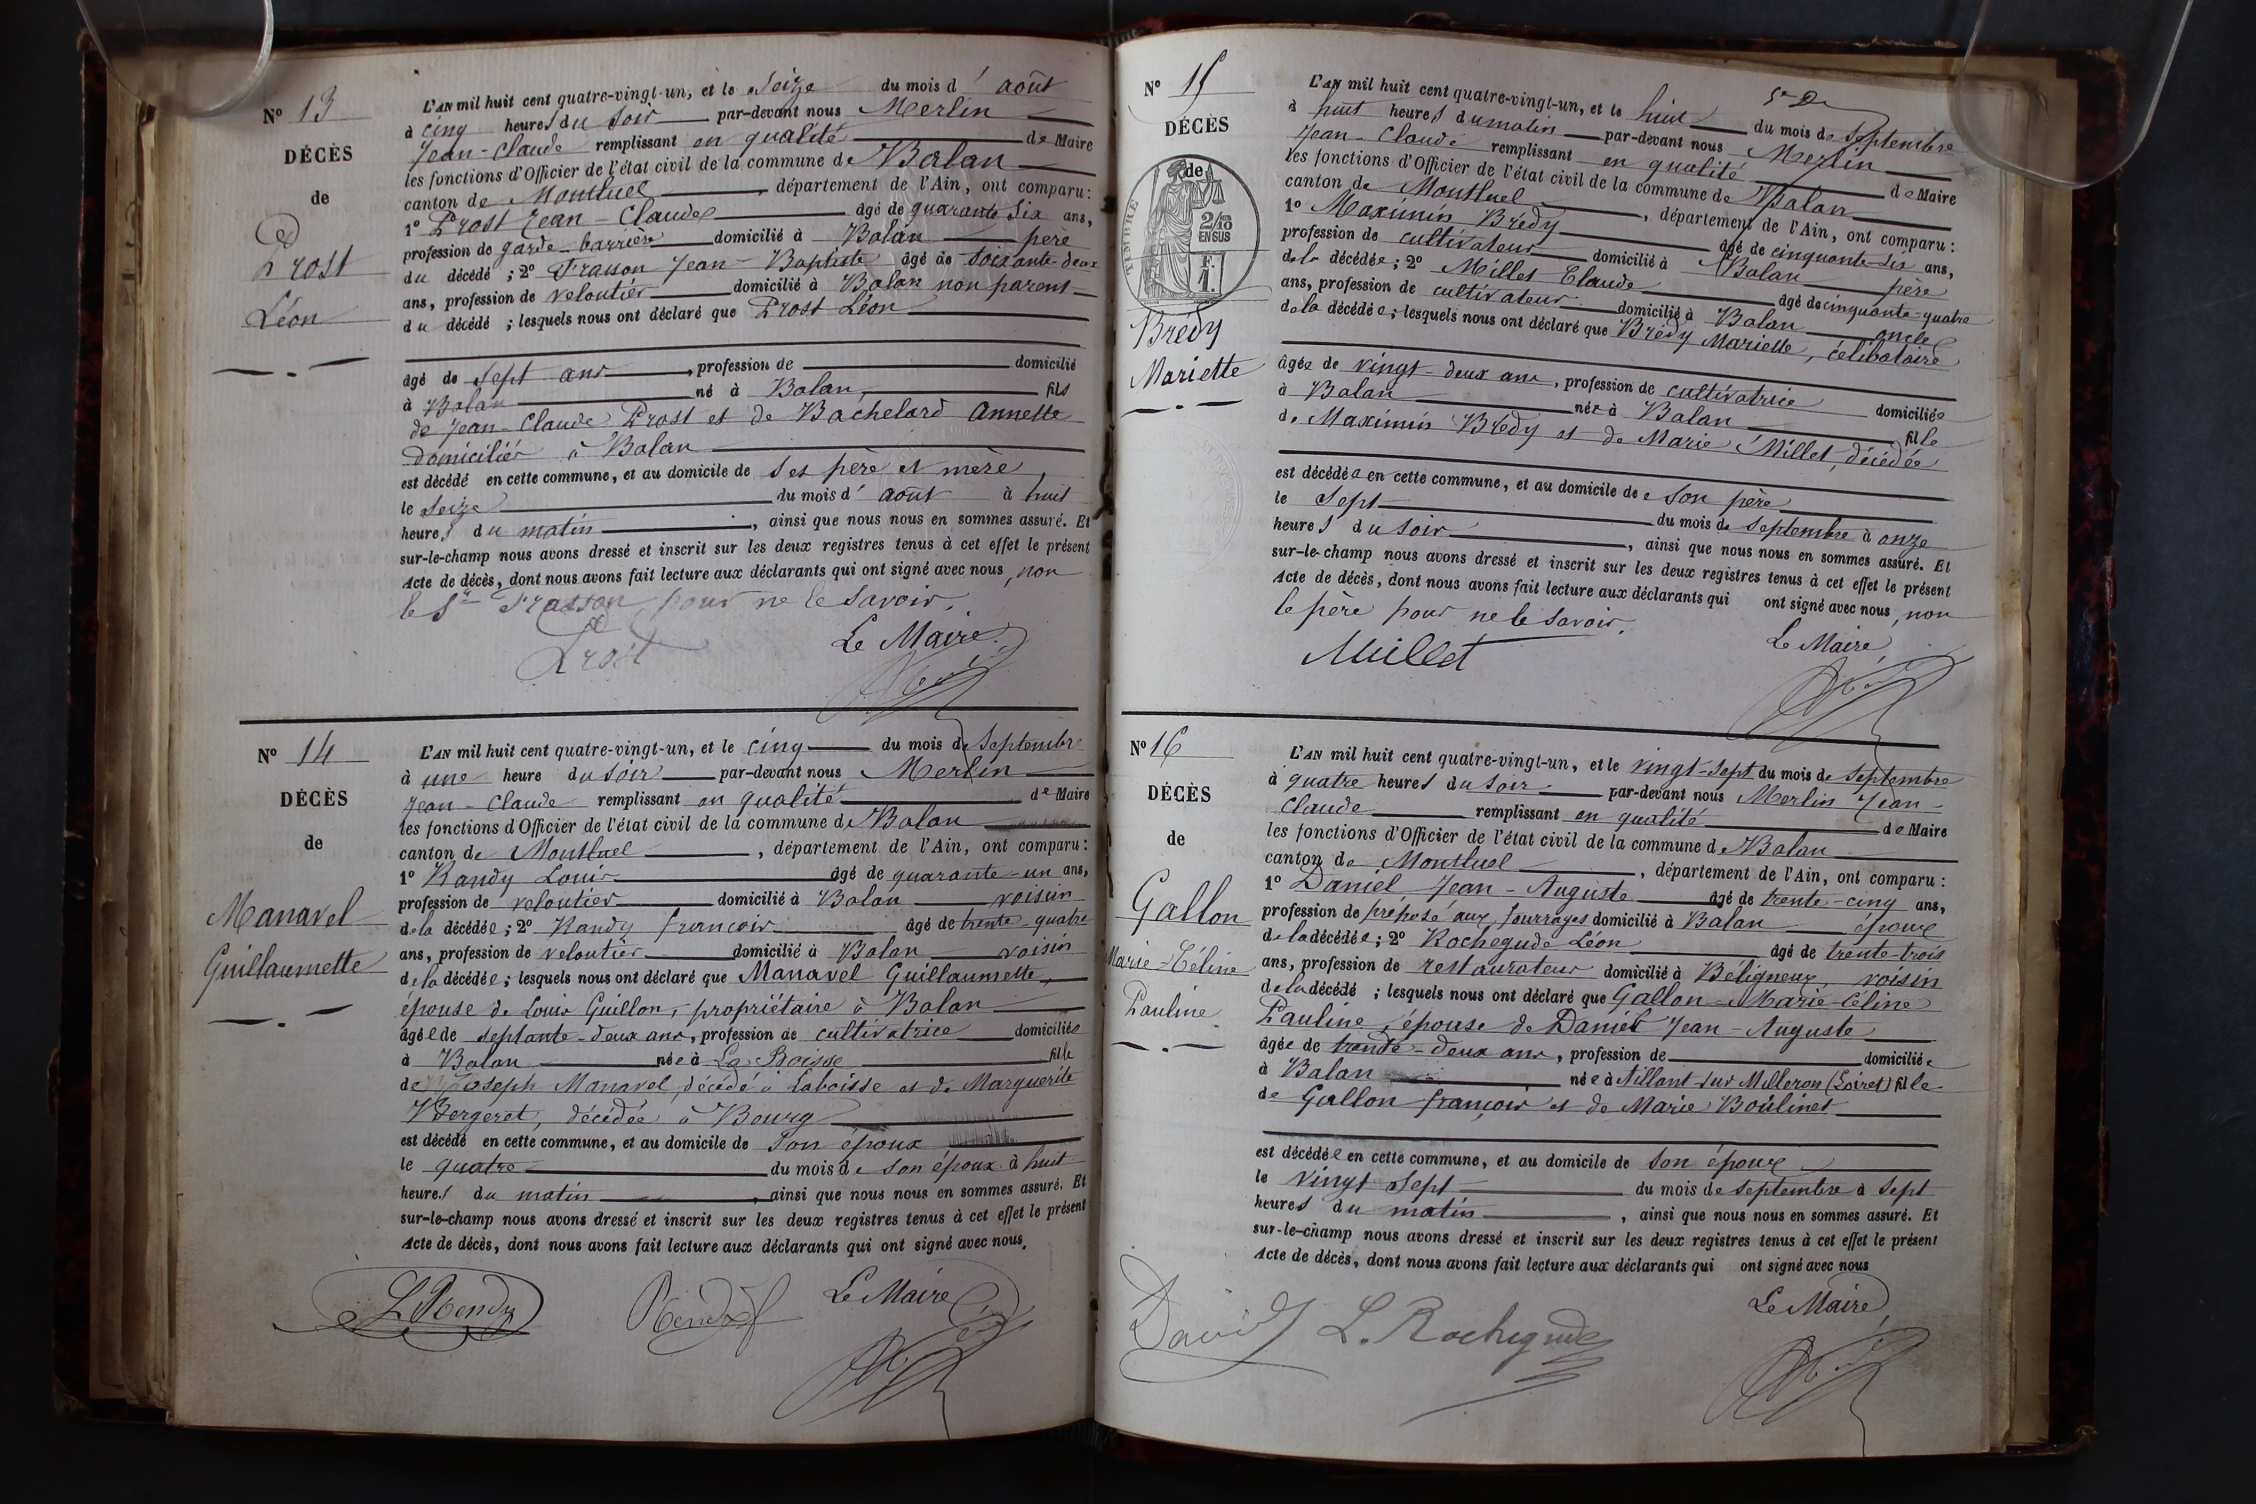 N° 13
DÉCÈS
de
Prost
Léon
L'AN mil huit cent quatre-vingt-un, et le Seize du mois d' août
à cinq heures du soir par-devant nous Merlin
Jean-Claude remplissant en qualité de Maire
les fonctions d'Officier de l'état civil de la commune de Balan
canton de Montluel, département de l'Ain, ont comparu:
1° Prost Jean-Claude âgé de quarante six ans,
profession de garde-barrière domicilié à Balan père
du décédé; 2° Frasson Jean-Baptiste âgé de soixante-deux
ans, profession de veloutier domicilié à Balan non parent
du décédé; lesquels nous ont déclaré que Prost Léon
âgé de sept ans, profession de domicilié
à Balan né à Balan, fils
de Jean-Claude Prost et de Bachelard Annette
domiciliés à Balan
est décédé en cette commune, et au domicile de ses père et mère
le seize du mois d' août à huit
heures du matin, ainsi que nous nous en sommes assuré. Et
sur-le-champ nous avons dressé et inscrit sur les deux registres tenus à cet effet le présent
Acte de décès, dont nous avons fait lecture aux déclarants qui ont signé avec nous, non
le Sr Frasson, pour ne le savoir.
Prost Le Maire
N° 14
DÉCÈS
de
Manavel
Guillaumette
L'AN mil huit cent quatre-vingt-un, et le cinq du mois de Septembre
à une heure du soir par-devant nous Merlin
Jean-Claude remplissant en qualité de Maire
les fonctions d'Officier de l'état civil de la commune de Balan
canton de Montluel, département de l'Ain, ont comparu:
1° Randy Louis âgé de quarante-un ans,
profession de veloutier domicilié à Balan voisin
de la décédée; 2° Randy françois âgé de trente-quatre
ans, profession de veloutier domicilié à Balan voisin
de la décédée; lesquels nous ont déclaré que Manavel Guillaumette,
épouse de Louis Guillon, propriétaire à Balan
âgée de septante-deux ans, profession de cultivatrice domiciliée
à Balan née à La Boisse fille
de Joseph Manavel, décédé à Laboisse et de Marguerite
Bergeret, décédée à Bourg
est décédé en cette commune, et au domicile de son époux
le quatre du mois de son époux à huit
heures du matin, ainsi que nous nous en sommes assuré. Et
sur-le-champ nous avons dressé et inscrit sur les deux registres tenus à cet effet le présent
Acte de décès, dont nous avons fait lecture aux déclarants qui ont signé avec nous.
L Rendy Rendy f Le Maire
N° 15
DÉCÈS
de
TIMBRE
2/10
EN SUS
F.
1.
Brédy
Mariette
L'AN mil huit cent quatre-vingt-un, et le huit du mois de Septembre
à huit heures du matin par-devant nous Merlin
Jean-Claude remplissant en qualité de Maire
les fonctions d'Officier de l'état civil de la commune de Balan
canton de Montluel, département de l'Ain, ont comparu:
1° Maximin Brédy âgé de cinquante-six ans,
profession de cultivateur domicilié à Balan père
de la décédée; 2° Millet Claude âgé de cinquante-quatre
ans, profession de cultivateur domicilié à Balan oncle
de la décédée; lesquels nous ont déclaré que Brédy Mariette, célibataire
âgée de vingt-deux ans, profession de cultivatrice domiciliée
à Balan née à Balan fille
de Maximin Brédy et de Marie Millet, décédée
est décédée en cette commune, et au domicile de son père
le Sept du mois de Septembre à onze
heures du soir, ainsi que nous nous en sommes assuré. Et
sur-le-champ nous avons dressé et inscrit sur les deux registres tenus à cet effet le présent
Acte de décès, dont nous avons fait lecture aux déclarants qui ont signé avec nous, non
le père pour ne le savoir.
Millet Le Maire
N° 16
DÉCÈS
de
Gallon
Marie-Céline
Pauline
L'AN mil huit cent quatre-vingt-un, et le vingt-sept du mois de Septembre
à quatre heures du soir par-devant nous Merlin Jean-
Claude remplissant en qualité de Maire
les fonctions d'Officier de l'état civil de la commune de Balan
canton de Montluel, département de l'Ain, ont comparu:
1° Daniel Jean-Auguste âgé de trente-cinq ans,
profession de préposé aux fourrages domicilié à Balan époux
de la décédée; 2° Rochegude Léon âgé de trente-trois
ans, profession de restaurateur domicilié à Béligneux, voisin
de la décédé; lesquels nous ont déclaré que Gallon Marie-Céline
Pauline, épouse de Daniel Jean-Auguste
âgée de trente-deux ans, profession de domiciliée
à Balan née à Aillant-sur Milleron (Loiret) fille
de Gallon françois et de Marie Boulinet
est décédée en cette commune, et au domicile de son époux
le vingt sept du mois de septembre à sept
heures du matin, ainsi que nous nous en sommes assuré. Et
sur-le-champ nous avons dressé et inscrit sur les deux registres tenus à cet effet le présent
Acte de décès, dont nous avons fait lecture aux déclarants qui ont signé avec nous
Le Maire
Daniel L. Rochegude